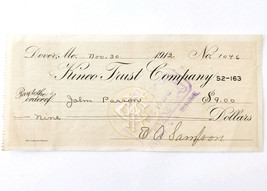 Dover, Me. Nov. 30 1912 No. 1046
Kineo Trust Company 52-163
Pay to the order of John Parson $9.00
Nine Dollars
E A Sampson